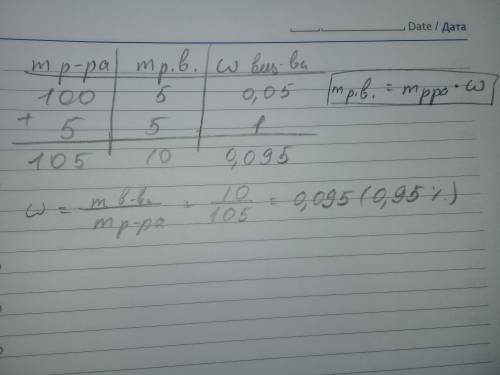 Date / Дата
m р-ра m р.в. ω вещ-ва
100 5 0,05
+ 5 5 1
105 10 0,095
m р.в. = m рра · ω
ω = m в-ва / m р-ра = 10 / 105 = 0,095 (0,95 %)